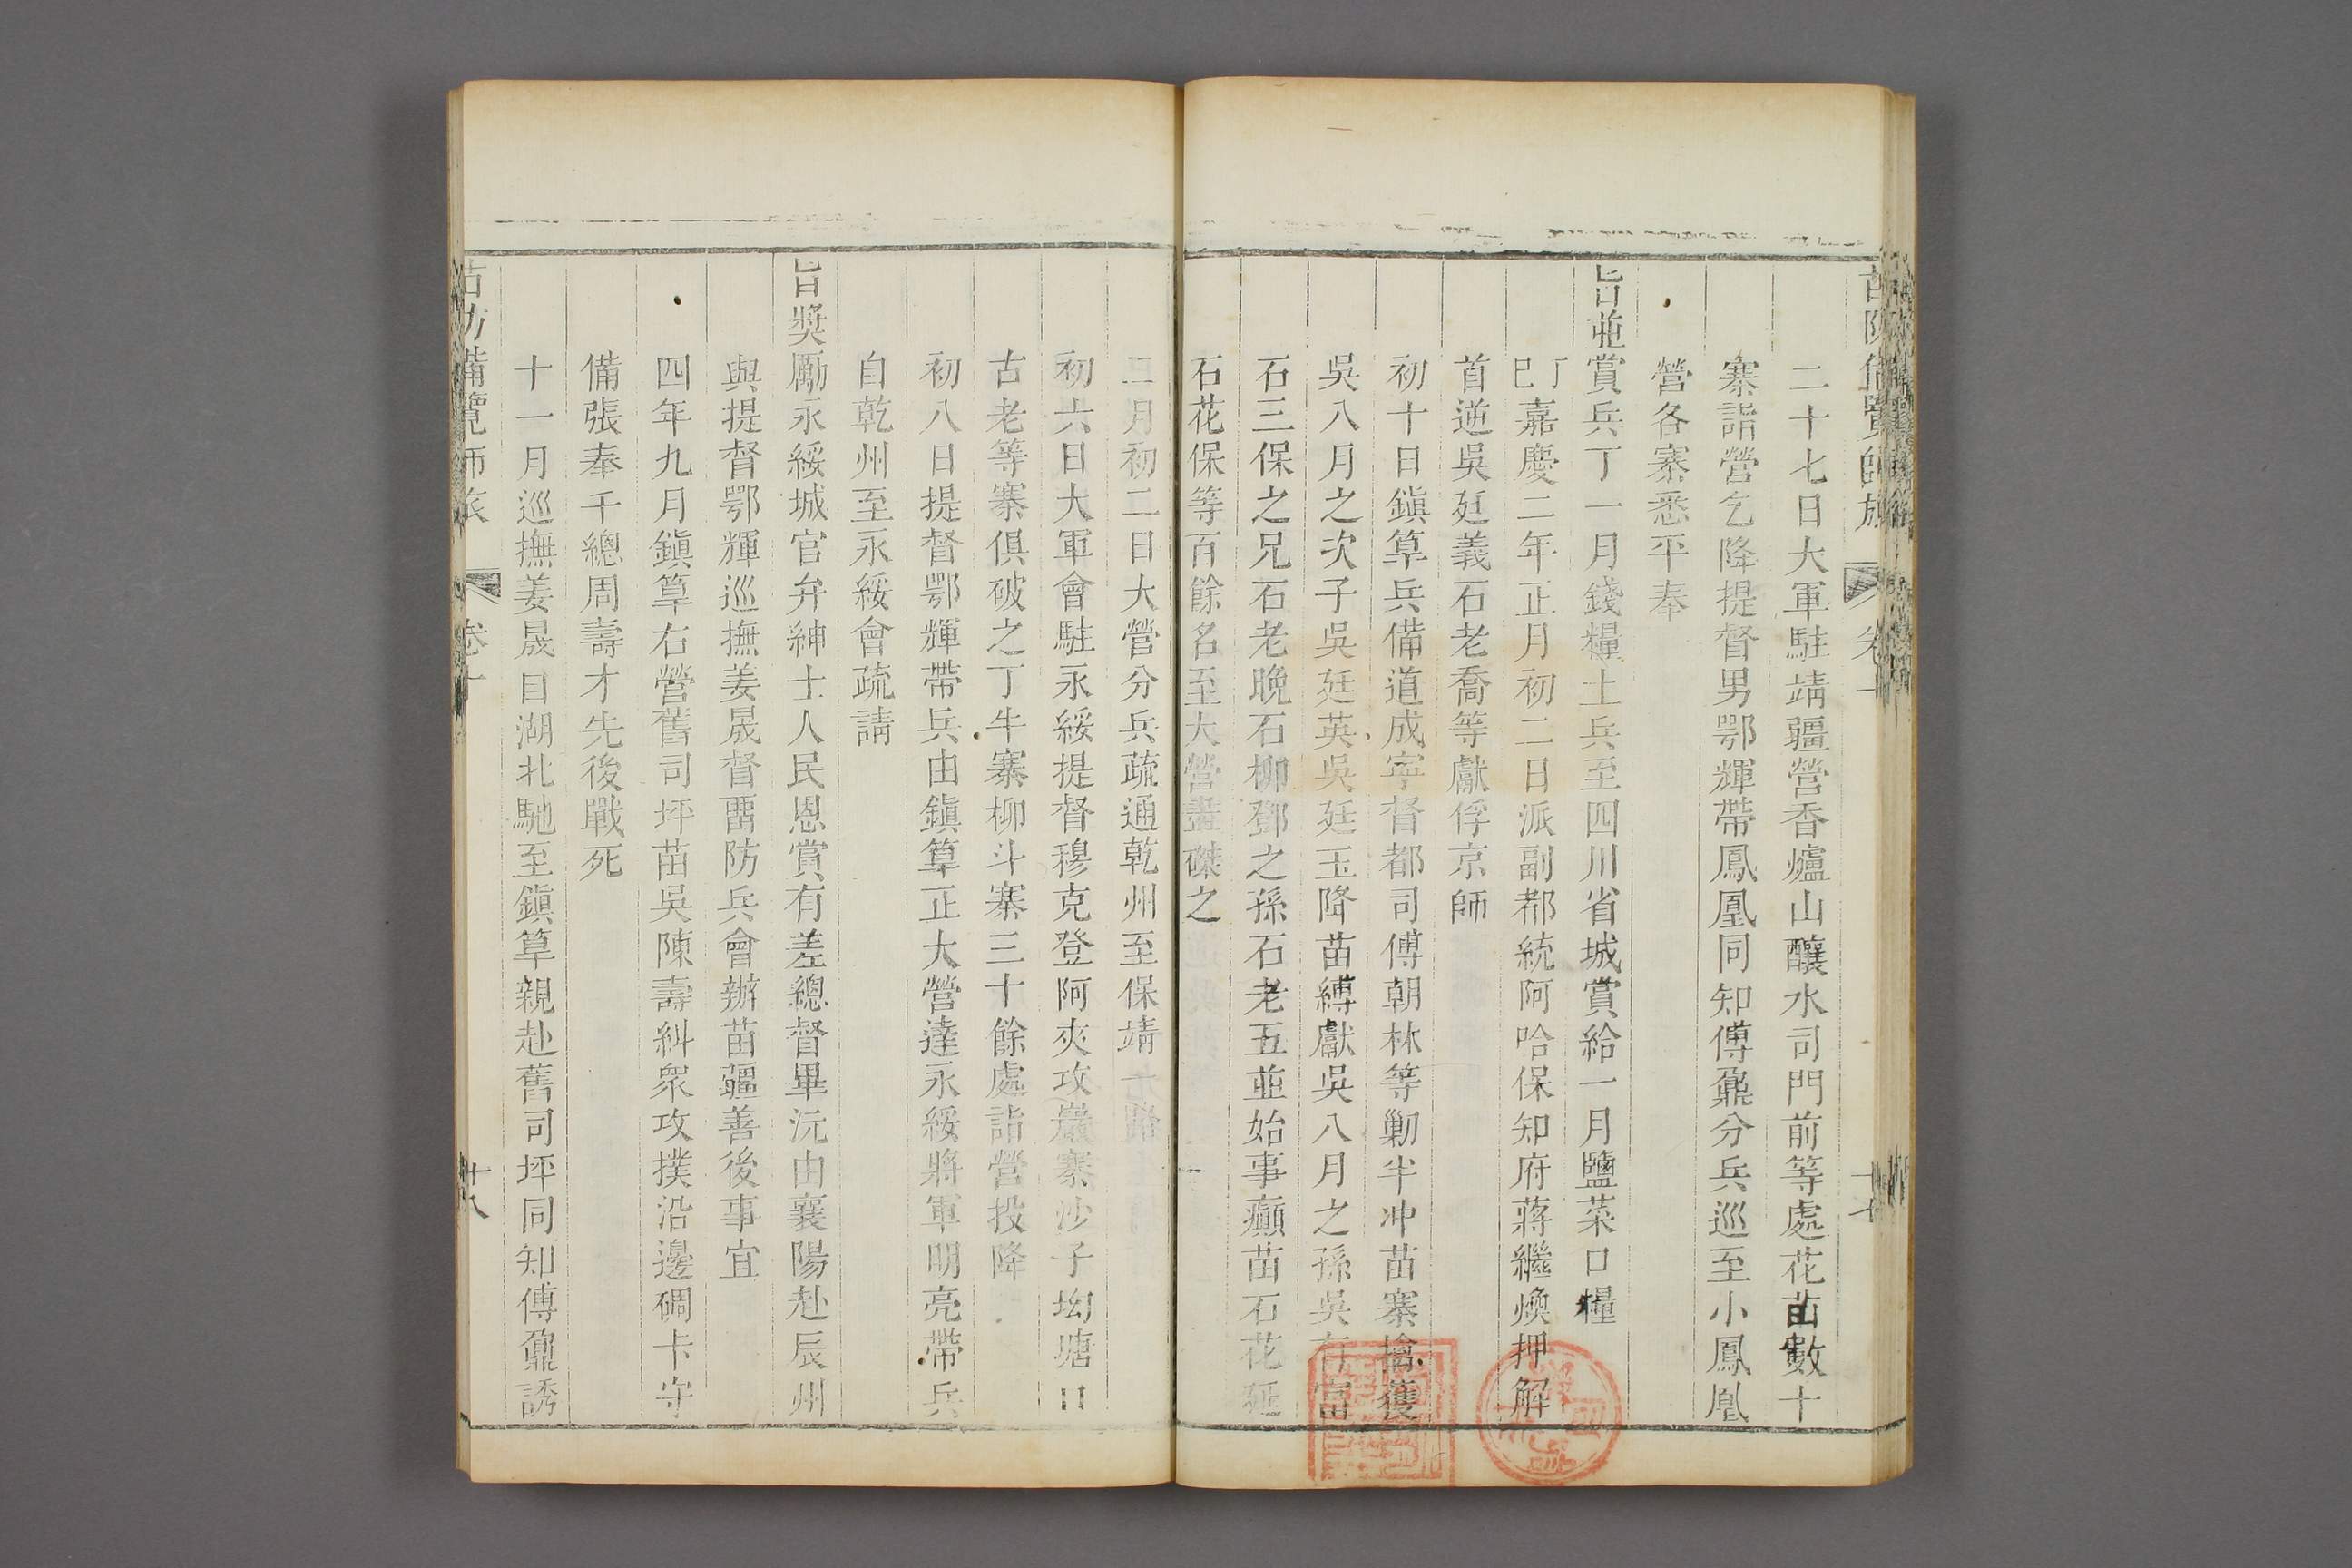 二十七日大軍駐靖疆營香爐山釀水司門前等處花苗數十
寨詣營乞降提督男鄂輝帶鳳凰同知傅鼐分兵巡至小鳳凰
營各寨悉平奉
旨並賞兵丁一月錢糧土兵至四川省城賞給一月鹽菜口糧
丁巳嘉慶二年正月初二日派副都統阿哈保知府蔣繼煥押解
首逆吳廷義石老喬等獻俘京師
初十日鎭筸兵備道成寧督都司傅朝林等勦半冲苗寨擒獲
吳八月之次子吳廷英吳廷玉降苗縛獻吳八月之孫吳有富
石三保之兄石老晚石柳鄧之孫石老五並始事癲苗石花延
石花保等百餘名至大營盡磔之
二月初二日大營分兵疏通乾州至保靖
初六日大軍會駐永綏提督穆克登阿夾攻巖寨沙子坳塘
古老等寨俱破之丁牛寨柳斗寨三十餘處詣營投降
初八日提督鄂輝帶兵由鎭筸正大營達永綏將軍明亮帶兵
自乾州至永綏會疏請
旨獎勵永綏城官弁紳士人民恩賞有差總督畢沅由襄陽赴辰州
與提督鄂輝巡撫姜晟督畱防兵會辦苗疆善後事宜
四年九月鎭筸右營舊司坪苗吳陳壽糾衆攻撲沿邊碉卡守
備張奉千總周壽才先後戰死
十一月巡撫姜晟自湖北馳至鎭筸親赴舊司坪同知傅鼐誘
苗防備覽師旅 卷十 十八